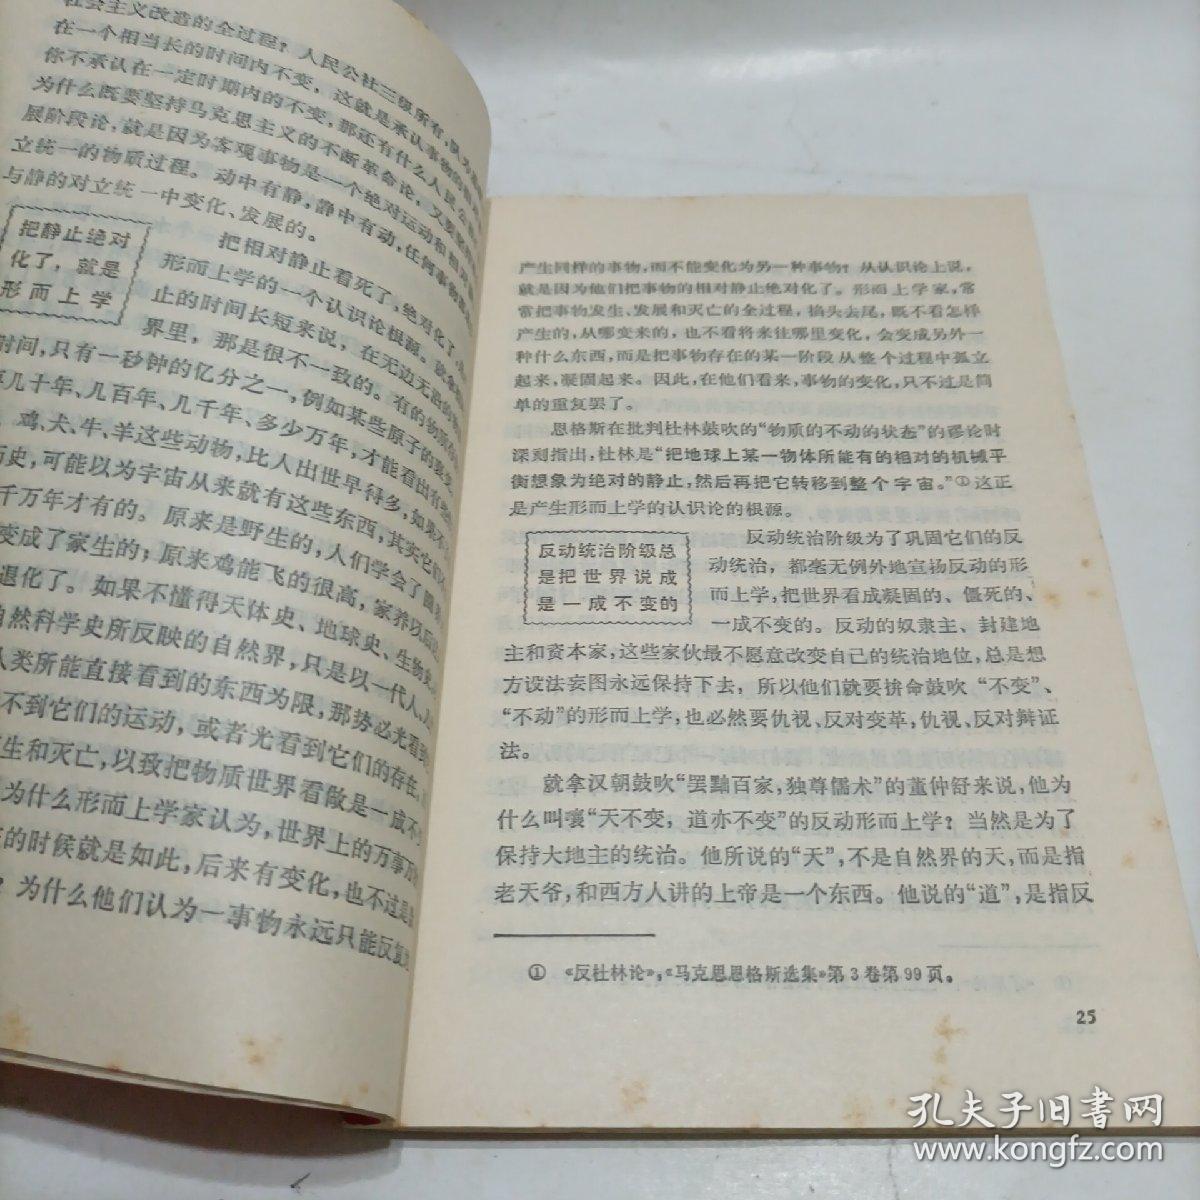 社会主义改造的全过程？人民公社三级所有，队为
在一个相当长的时间内不变，这就是承认事物的
你不承认在一定时期内的不变，那还有什么人民公
为什么既要坚持马克思主义的不断革命论，又要坚持
展阶段论，就是因为客观事物是一个绝对运动和相对
立统一的物质过程。动中有静，静中有动，任何事物
与静的对立统一中变化、发展的。
把静止绝对
化了，就是
形而上学
把相对静止看死了，绝对化了，
形而上学的一个认识论根源。
止的时间长短来说，在无边无
界里，那是很不一致的。有的物质
时间，只有一秒钟的亿分之一，例如某些原子的
几十年、几百年、几千年、多少万年，才能看出有
鸡、犬、牛、羊这些动物，比人出世早得多，如果不
历史，可能以为宇宙从来就有这些东西，其实它们
千万年才有的。原来是野生的，人们学会了
变成了家生的；原来鸡能飞的很高，家养以后
退化了。如果不懂得天体史、地球史、生物
自然科学史所反映的自然界，只是以一代人、
人类所能直接看到的东西为限，那势必光看到
不到它们的运动，或者光看到它们的存在，
生和灭亡，以致把物质世界看做是一成不
为什么形而上学家认为，世界上的万事万
的时候就是如此，后来有变化，也不过是
？为什么他们认为一事物永远只能反复
产生同样的事物，而不能变化为另一种事物？从认识论上说，
就是因为他们把事物的相对静止绝对化了。形而上学家，常
常把事物发生、发展和灭亡的全过程，掐头去尾，既不看怎样
产生的，从哪变来的，也不看将来往哪里变化，会变成另外一
种什么东西，而是把事物存在的某一阶段从整个过程中孤立
起来，凝固起来。因此，在他们看来，事物的变化，只不过是简
单的重复罢了。
恩格斯在批判杜林鼓吹的“物质的不动的状态”的谬论时
深刻指出，杜林是“把地球上某一物体所能有的相对的机械平
衡想象为绝对的静止，然后再把它转移到整个宇宙。”①这正
是产生形而上学的认识论的根源。
反动统治阶级总
是把世界说成
是一成不变的
反动统治阶级为了巩固它们的反
动统治，都毫无例外地宣扬反动的形
而上学，把世界看成凝固的、僵死的、
一成不变的。反动的奴隶主、封建地
主和资本家，这些家伙最不愿意改变自己的统治地位，总是想
方设法妄图永远保持下去，所以他们就要拚命鼓吹“不变”、
“不动”的形而上学，也必然要仇视、反对变革，仇视、反对辩证
法。
就拿汉朝鼓吹“罢黜百家，独尊儒术”的董仲舒来说，他为
什么叫嚷“天不变，道亦不变”的反动形而上学？当然是为了
保持大地主的统治。他所说的“天”，不是自然界的天，而是指
老天爷，和西方人讲的上帝是一个东西。他说的“道”，是指反
① 《反杜林论》，《马克思恩格斯选集》第3卷第99页。
25
孔夫子旧书网
www.kongfz.com